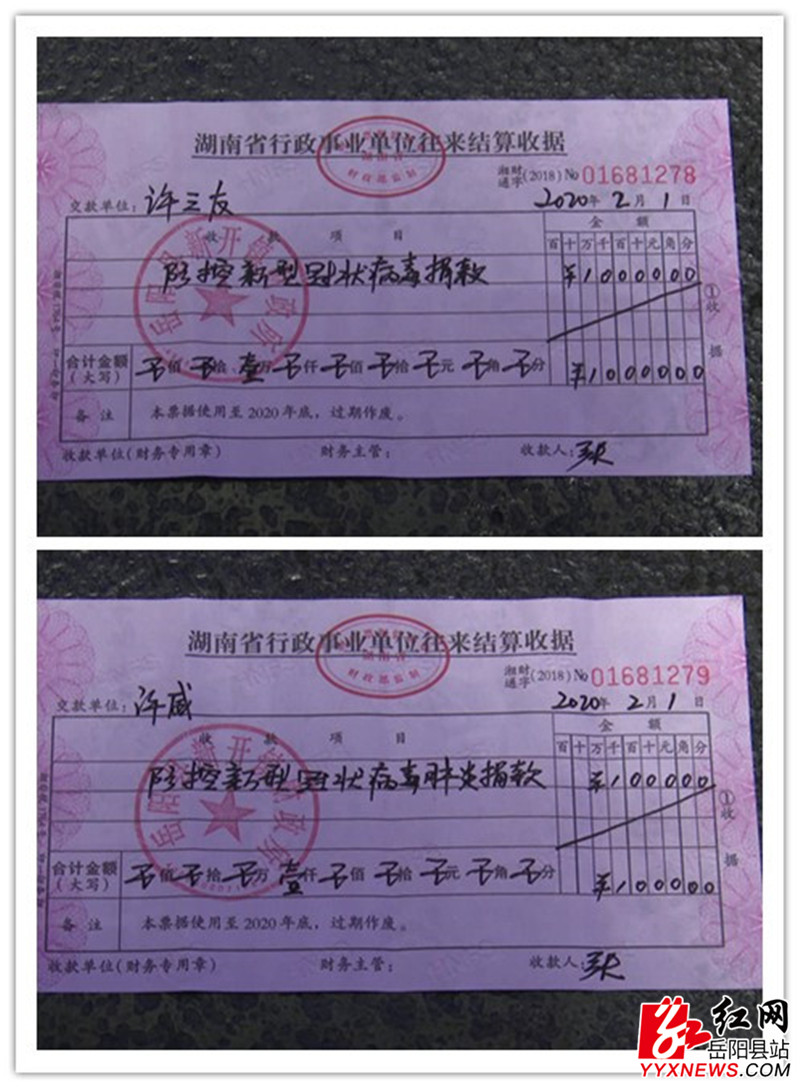 湖南省行政事业单位往来结算收据
财政部监制
湘财通字(2018) No 01681278
交款单位: 许三友 2020年2月1日
收款项目 金额
百十万千百十元角分
防控新型冠状病毒捐款 ¥1000000
①收据
合计金额(大写) 不佰不拾壹万不仟不佰不拾不元不角不分 ¥1000000
备注 本票据使用至2020年底,过期作废。
收款单位(财务专用章) 财务主管: 收款人:
湖南省行政事业单位往来结算收据
财政部监制
湘财通字(2018) No 01681279
交款单位: 许威 2020年2月1日
收款项目 金额
百十万千百十元角分
防控新型冠状病毒肺炎捐款 ¥100000
①收据
合计金额(大写) 不佰不拾不万壹仟不佰不拾不元不角不分 ¥100000
备注 本票据使用至2020年底,过期作废。
收款单位(财务专用章) 财务主管: 收款人:
红网
岳阳县站
YYXNEWS.COM